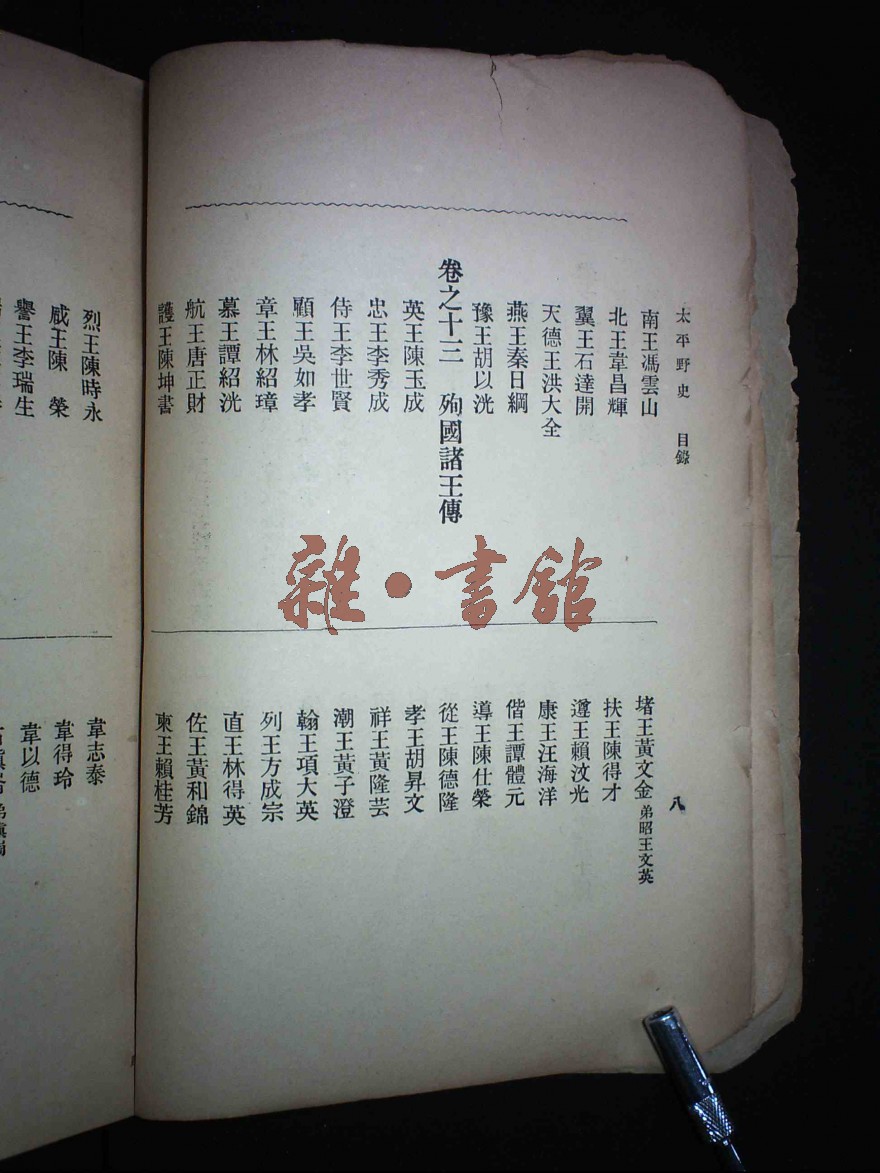 太平野史　目錄
八
南王馮雲山
北王韋昌輝
翼王石達開
天德王洪大全
燕王秦日綱
豫王胡以洸
卷之十三　殉國諸王傳
英王陳玉成
忠王李秀成
侍王李世賢
顧王吳如孝
章王林紹璋
慕王譚紹洸
航王唐正財
護王陳坤書
堵王黃文金　弟昭王文英
扶王陳得才
遵王賴汶光
康王汪海洋
偕王譚體元
導王陳仕榮
從王陳德隆
孝王胡昇文
祥王黃隆芸
潮王黃子澄
翰王項大英
列王方成宗
直王林得英
佐王黃和錦
柬王賴桂芳
雜·書館
烈王陳時永
陳　榮
譽王李瑞生
韋志泰
韋得玲
韋以德